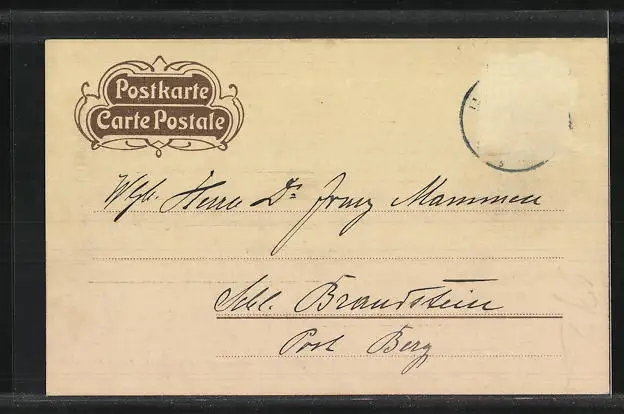 Postkarte
Carte Postale
Wlgb. Herrn Dr. Franz Mammen
Schl. Brandstein
Post Berg